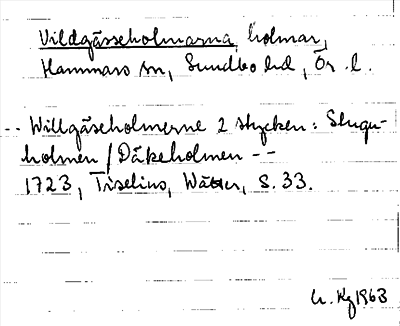 Vildgässeholmarna, holmar,
Hammars sn, Sundbo hd, Ör. l.
-- Willgäseholmerne 2 stycken: Slugu-
holmen / Däkeholmen --
1723, Tiselius, Wätter, S. 33.
Kg 1963